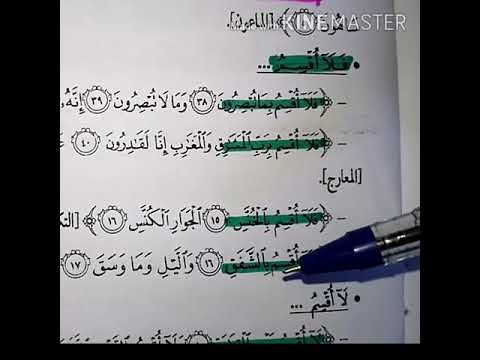 MADE WITH
KINEMASTER
﴾ [الماعون].
• فَلَآ أُقْسِمُ ...
– ﴿فَلَآ أُقْسِمُ بِمَا تُبْصِرُونَ ٣٨ وَمَا لَا تُبْصِرُونَ ٣٩ إِنَّهُۥ
– ﴿فَلَآ أُقْسِمُ بِرَبِّ ٱلْمَشَٰرِقِ وَٱلْمَغَٰرِبِ إِنَّا لَقَٰدِرُونَ ٤٠
[المعارج].
– ﴿فَلَآ أُقْسِمُ بِٱلْخُنَّسِ ١٥ ٱلْجَوَارِ ٱلْكُنَّسِ ١٦﴾
أُقْسِمُ بِٱلشَّفَقِ ١٦ وَٱلَّيْلِ وَمَا وَسَقَ ١٧
• لَآ أُقْسِمُ ...